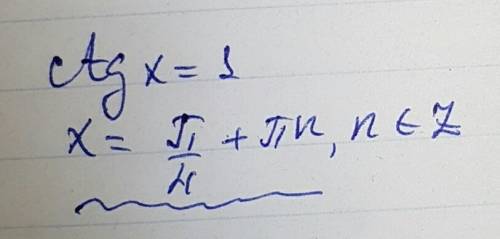 ctg x = 1
x = π/4 + πn, n ∈ Z